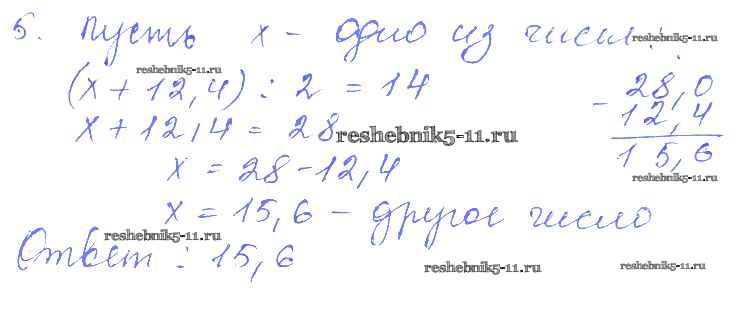 5. Пусть x - одно из чисел:
reshebnik5-11.ru
reshebnik5-11.ru
(x + 12,4) : 2 = 14
28,0
x + 12,4 = 28
- 12,4
reshebnik5-11.ru
x = 28 - 12,4
15,6
reshebnik5-11.ru
x = 15,6 - другое число
reshebnik5-11.ru
Ответ: 15,6
reshebnik5-11.ru
reshebnik5-11.ru